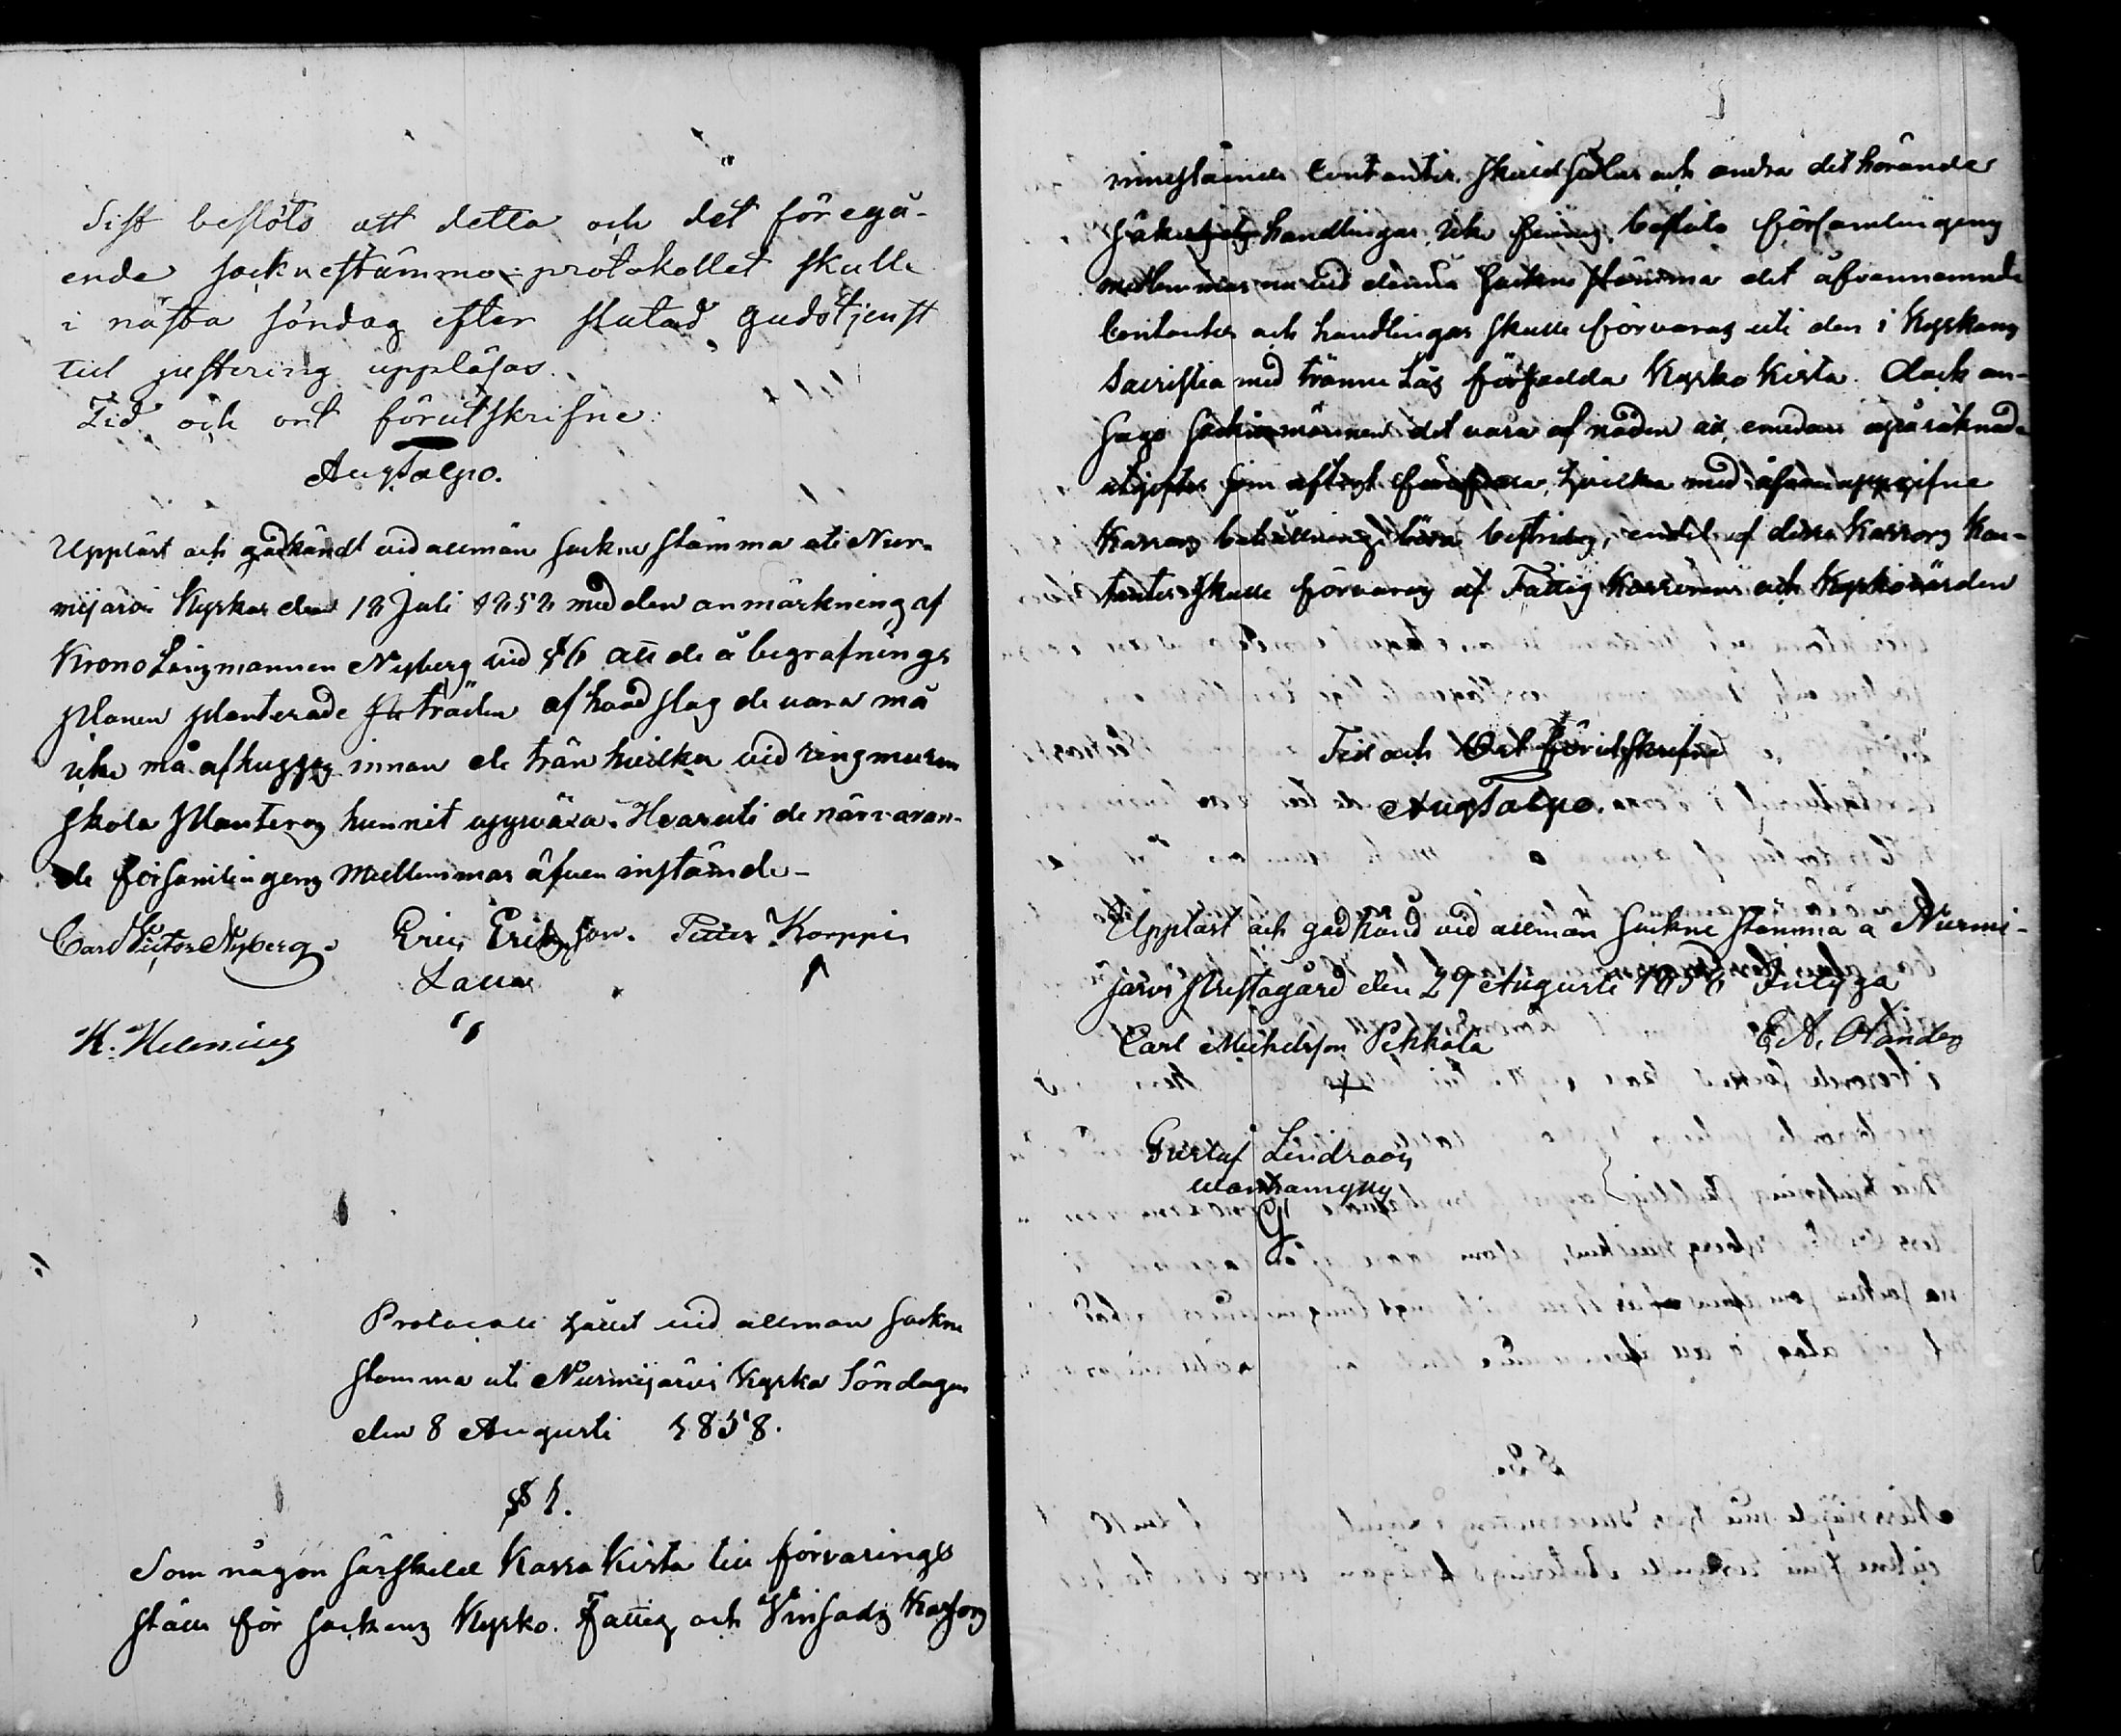 Sist beslöts att detta och det föregå-
ende sockneståmmo-protokollet skulle
i nästa söndag efter slutad gudstjenst
till justering uppläsas.
Tid och ort förutskrifne:
Aug Talpo.
Uppläst och godkändt vid allmän sockne stämma uti Nur-
mijärvi Kyrka den 18 Juli 1858 med den anmärkning af
Krono Länsmannen Nyberg vid § 6 att de å begrafnings
planen planterade träden af hvad slag de vara må
icke må afhuggas innan de trän hvilka vid ringmuren
skola planteras hunnit uppväxa. Hvaruti de närvaran-
de församlingens medlemmar äfven instämde-
Carl Victor Nyberg. Eric Ericsson. Petter Korppi
Laura
K. Helenius
Protocoll hållet vid allmän sockne
stämma uti Nurmijärvi Kyrka Söndagen
den 8 Augusti 1858.
§ 1.
Som någon särskild Kassa Kista till förvarings
ställe för sockens Kyrko. Fattig och Kassors
innestående Contanter. Skuldsedlar och andra dit hörande
säkerhets handlingar icke beslöto församlingens
medlemmar nu vid denna Sockne stämma det äfvannemnde
Contanter och handlingar skulle förvaras uti den i Kyrkans
Sacristia med tränne Lås försedda Kyrko Kista. Dock an-
sågo sockne männen det vara af nöden att, emedan opåräknade
utgifter som oftast hvilka med
Kassans behållning böra bestridas, endel af dessa Kassors Kon-
tanter skulle förvaras af Fattig Kassören och Kyrkovärden
Tid och Ort förutskrifne
Aug Talpo.
Uppläst och godkänd vid allmän Sockne stämma å Nurmi-
järvi Prestagård den 29 Augusti 1858 Intyga
Carl Michelsson Pekkola E A.
Gustaf
G